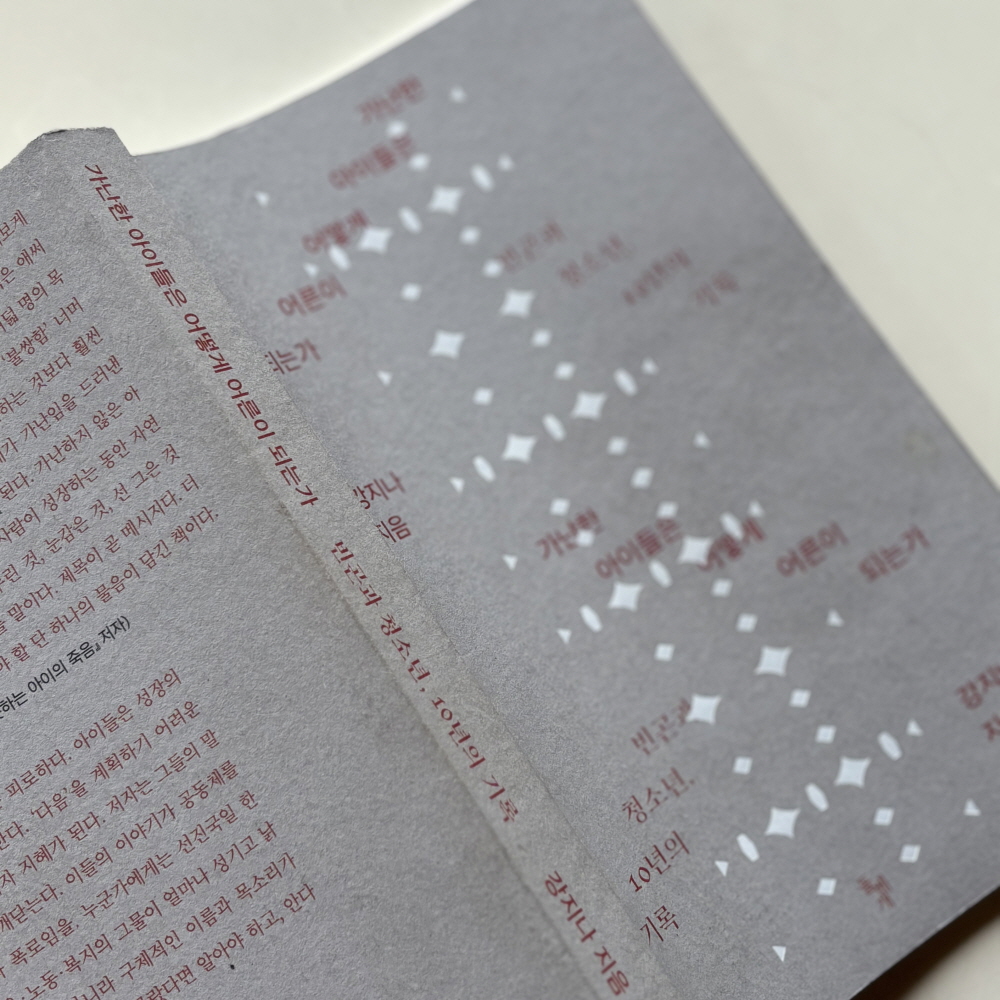 보게
은 애써
덟 명의 목
'불쌍함' 너머
하는 것보다 훨씬
가 가난임을 드러낸
된다. 가난하지 않은 아
사람이 성장하는 동안 자연
린 것, 눈감은 것, 선 그은 것
말이다. 제목이 곧 메시지다. 더
야 할 단 하나의 물음이 담긴 책이다.
하는 아이의 죽음』 저자)
피로하다. 아이들은 성장의
한다. '다음'을 계획하기 어려운
자 지혜가 된다. 저자는 그들의 말
깨닫는다. 이들의 이야기가 공동체를
폭로임을. 누군가에게는 선진국일 한
·노동·복지의 그물이 얼마나 성기고 낡
아니라 구체적인 이름과 목소리가
알아야 하고, 안다
가난한 아이들은 어떻게 어른이 되는가 빈곤과 청소년, 10년의 기록 강지나 지음
가난한
아이들은
어떻게
어른이
되는가
강지나
지음
빈곤과
청소년,
10년의
기록
가난한
아이들은
어떻게
어른이
되는가
빈곤과
청소년,
10년의
기록
강지